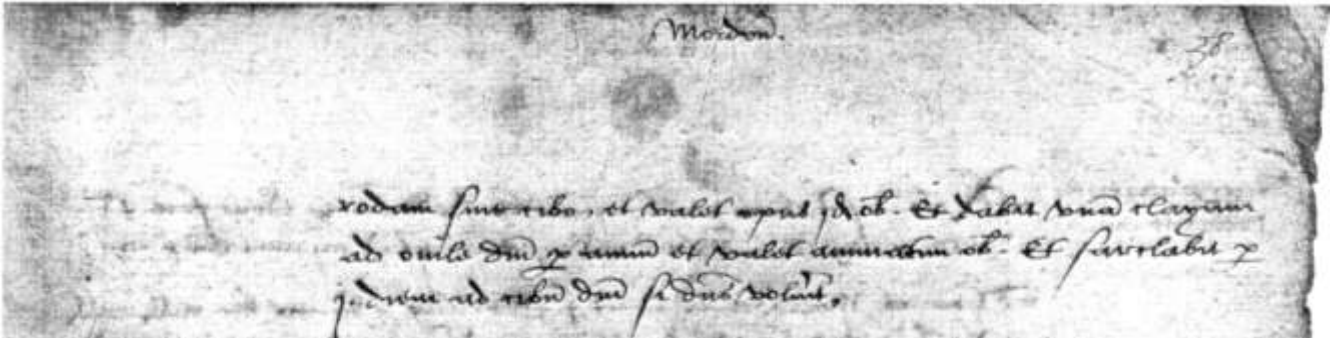 Mordoñ.
28
rodam sine cibo. et valet opus jd ob. Et dabit unā clayam
ad ovile dñi p annū et valet annuatim ob. Et sarclabit p
j diem ad cibū dñi si dñs voluit.